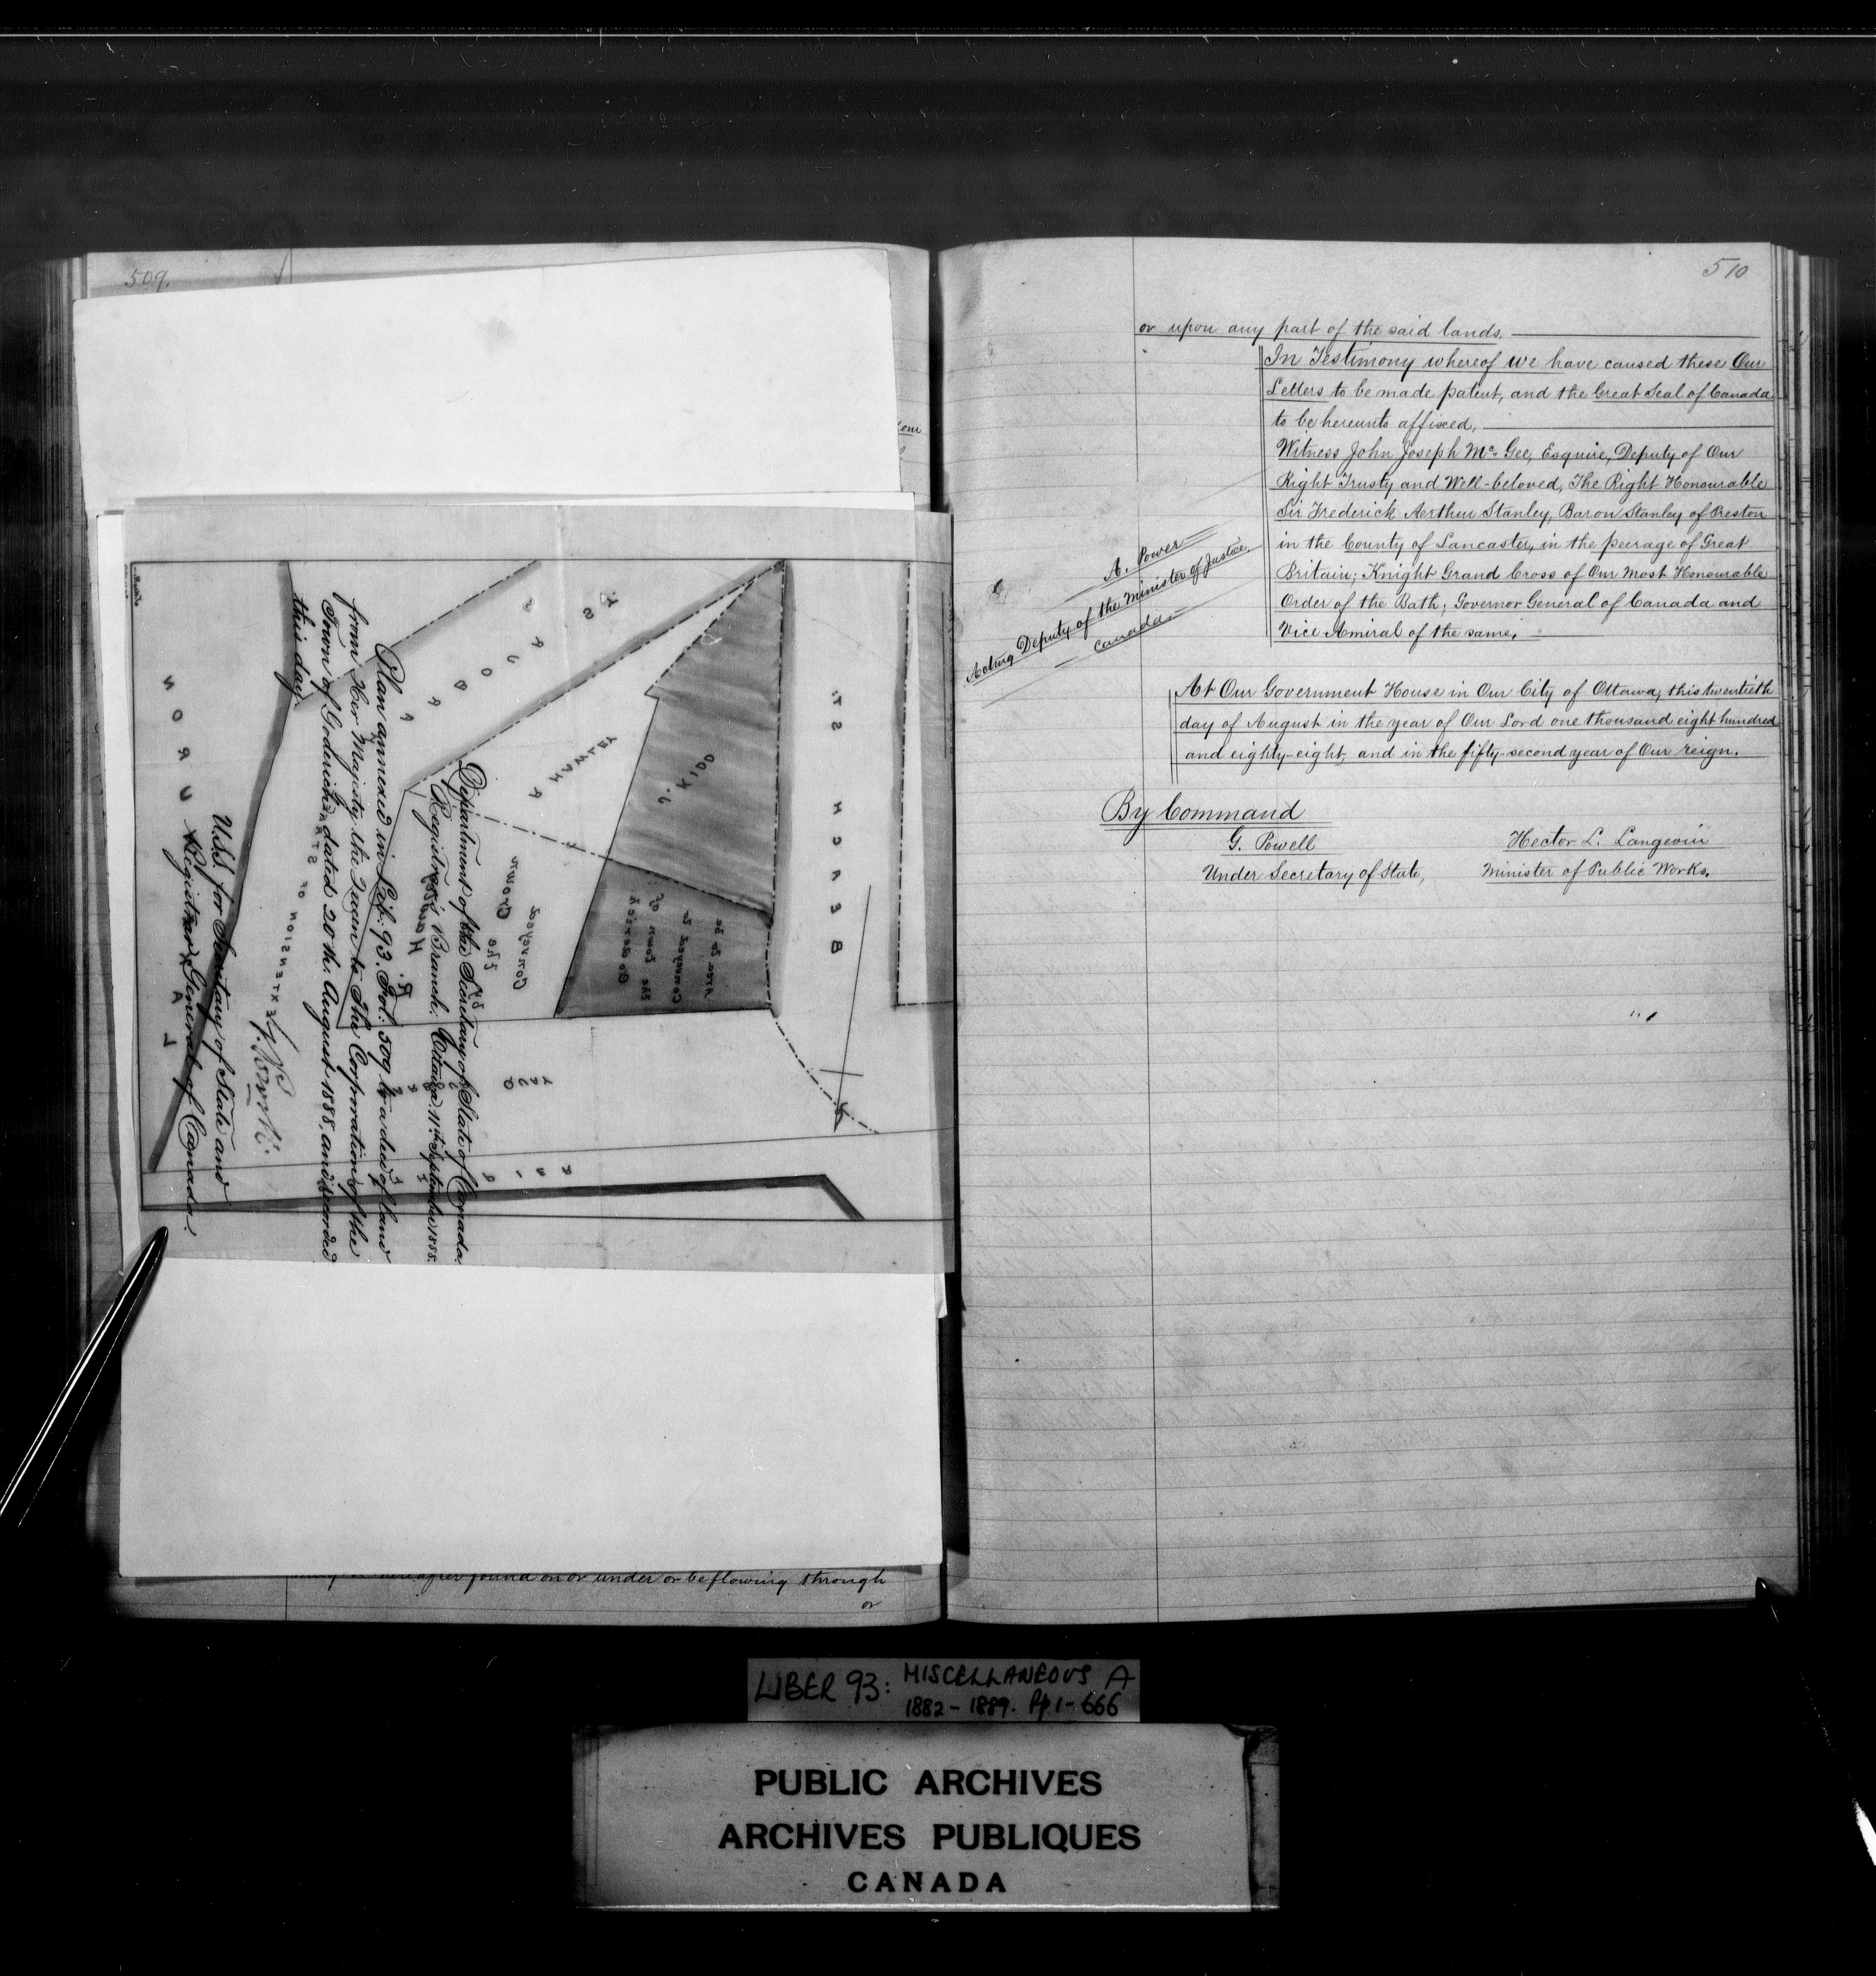 509.
Department of the Secretary of State of Canada.
Registrar's Branch, Ottawa, 11th September 1888.
Plan annexed in Lib: 93. Fol: 509 to a deed of land
from Her Majesty the Queen to The Corporation of the
Town of Goderich, dated 20th August 1888, and recorded
this day.
U.S.S. for Secretary of State and
Registrar General of Canada.
BEACH ST.
J. KIDD
R HAWLEY
Area to be
Conveyed to
the Town of
Goderich
Conveyed
to the
Crown
QUAY
PIER
hereafter found on or under or be flowing through
or
510
or upon any part of the said lands.
In Testimony whereof we have caused these Our
Letters to be made patent, and the Great Seal of Canada
to be hereunto affixed,
Witness John Joseph Mc Gee, Esquire, Deputy of Our
Right Trusty and Well-beloved, The Right Honourable
Sir Frederick Arthur Stanley, Baron Stanley of Preston
in the County of Lancaster, in the peerage of Great
Britain; Knight Grand Cross of Our Most Honourable
Order of the Bath; Governor General of Canada and
Vice Amiral of the same,
A. Power
Acting Deputy of the Minister of Justice,
Canada
At Our Government House in Our City of Ottawa, this twentieth
day of August in the year of Our Lord one thousand eight hundred
and eighty-eight, and in the fifty-second year of Our reign.
By Command
G. Powell
Under Secretary of State,
Hector L. Langevin
Minister of Public Works.
LIBER 93: MISCELLANEOUS A
1882-1889. Pp. 1-666
PUBLIC ARCHIVES
ARCHIVES PUBLIQUES
CANADA